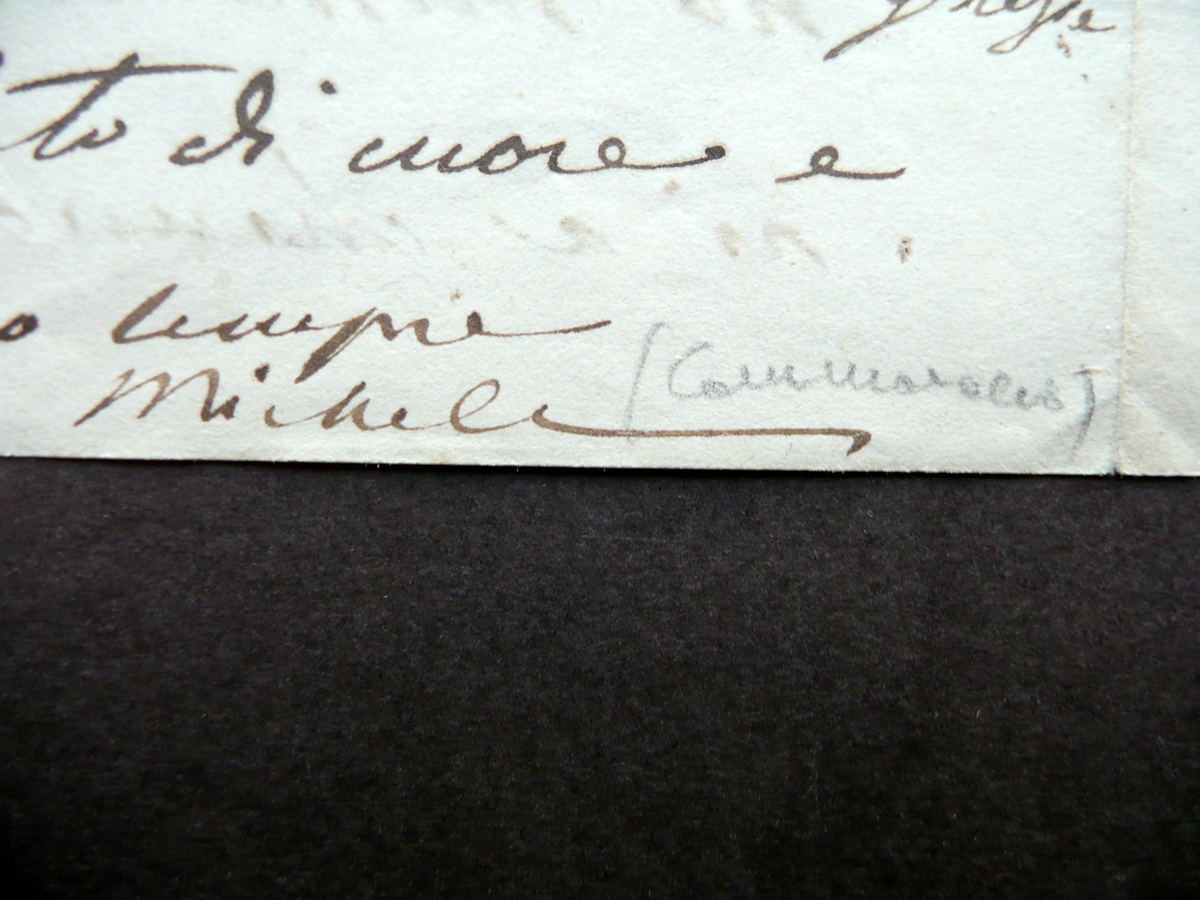 to di more e
o sempre
Michele (Cammarano)